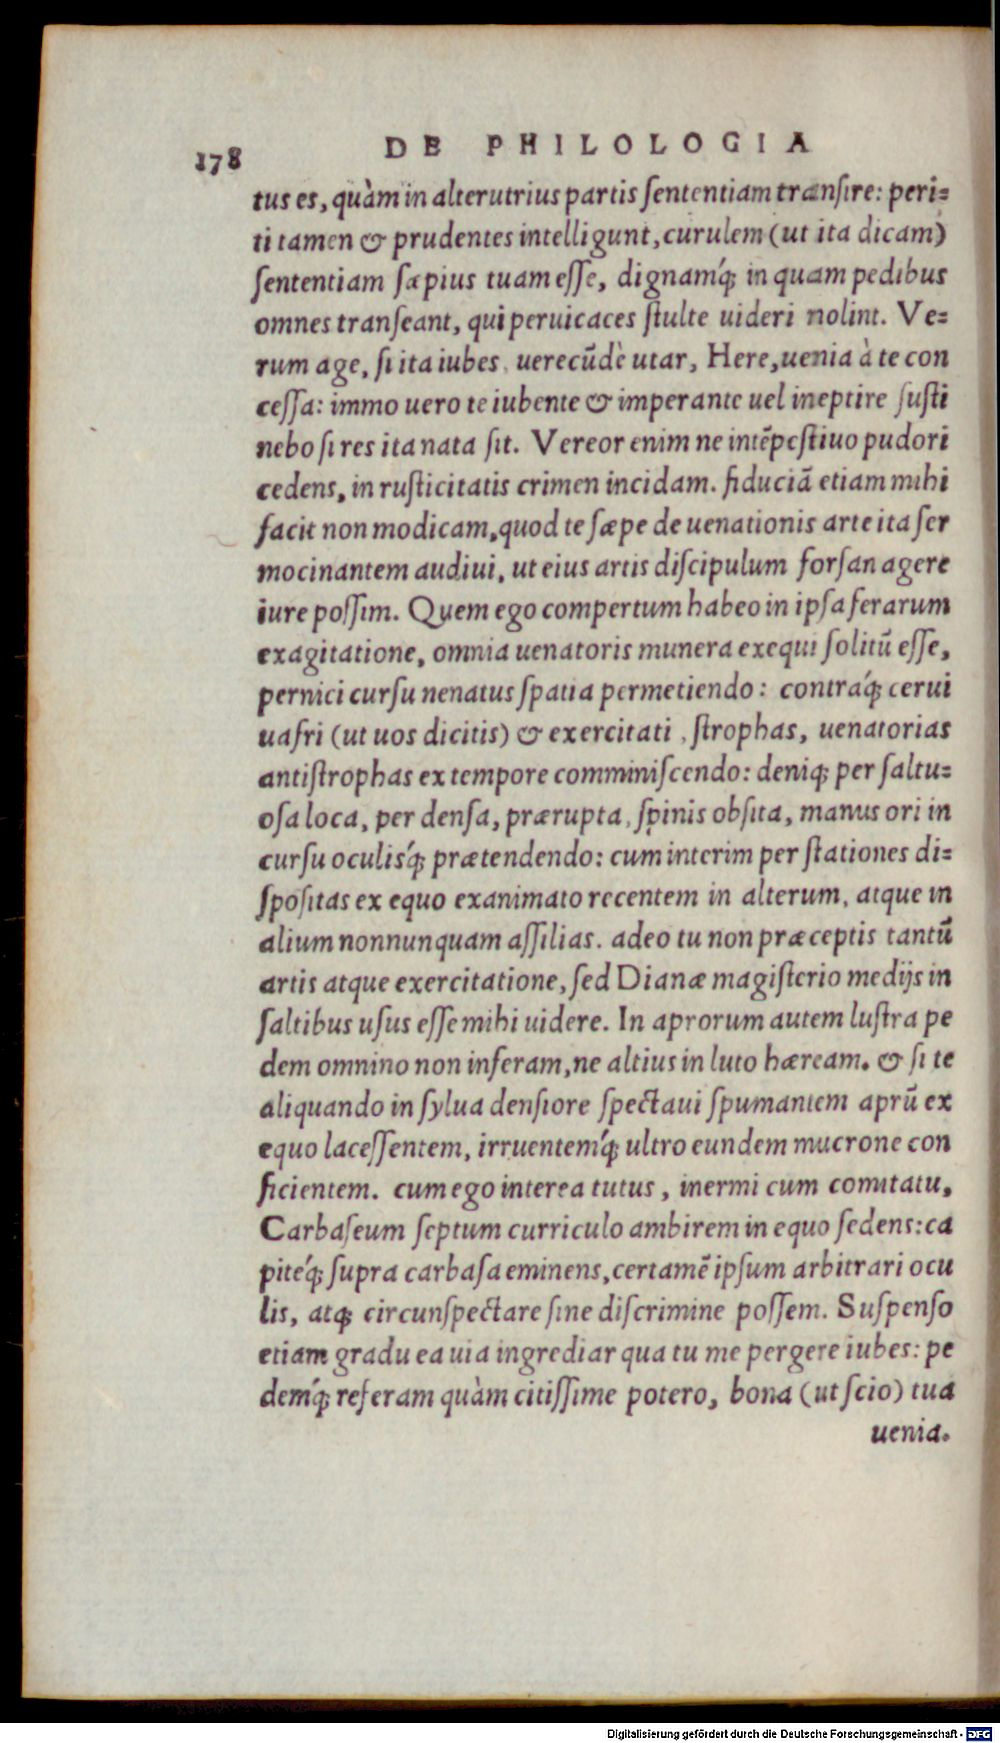 178
DE PHILOLOGIA
tus es, quàm in alterutrius partis ſententiam tranſire: peri=
ti tamen & prudentes intelligunt, curulem (ut ita dicam)
ſententiam ſæpius tuam eſſe, dignamq́; in quam pedibus
omnes tranſeant, qui peruicaces ſtulte uideri nolint. Ve=
rum age, ſi ita iubes, uerecūdè utar, Here, uenia à te con
ceſſa: immo uero te iubente & imperante uel ineptire ſuſti
nebo ſi res ita nata ſit. Vereor enim ne intēpeſtiuo pudori
cedens, in ruſticitatis crimen incidam. fiduciā etiam mihi
facit non modicam, quod te ſæpe de uenationis arte ita ſer
mocinantem audiui, ut eius artis diſcipulum forſan agere
iure poſſim. Quem ego compertum habeo in ipſa ferarum
exagitatione, omnia uenatoris munera exequi ſolitū eſſe,
pernici curſu nenatus ſpatia permetiendo: contraq́; cerui
uafri (ut uos dicitis) & exercitati, ſtrophas, uenatorias
antiſtrophas ex tempore comminiſcendo: deniq; per ſaltu=
oſa loca, per denſa, prærupta, ſpinis obſita, manus ori in
curſu oculisq́; prætendendo: cum interim per ſtationes di=
ſpoſitas ex equo exanimato recentem in alterum, atque in
alium nonnunquam aſſilias. adeo tu non præceptis tantū
artis atque exercitatione, ſed Dianæ magiſterio medijs in
ſaltibus uſus eſſe mihi uidere. In aprorum autem luſtra pe
dem omnino non inferam, ne altius in luto hæream. & ſi te
aliquando in ſylua denſiore ſpectaui ſpumantem aprū ex
equo laceſſentem, irruentemq́; ultro eundem mucrone con
ficientem. cum ego interea tutus, inermi cum comitatu,
Carbaſeum ſeptum curriculo ambirem in equo ſedens: ca
piteq́; ſupra carbaſa eminens, certamē ipſum arbitrari ocu
lis, atq; circunſpectare ſine diſcrimine poſſem. Suſpenſo
etiam gradu ea uia ingrediar qua tu me pergere iubes: pe
demq́; referam quàm citiſſime potero, bona (ut ſcio) tua
uenia.
Digitalisierung gefördert durch die Deutsche Forschungsgemeinschaft - DFG